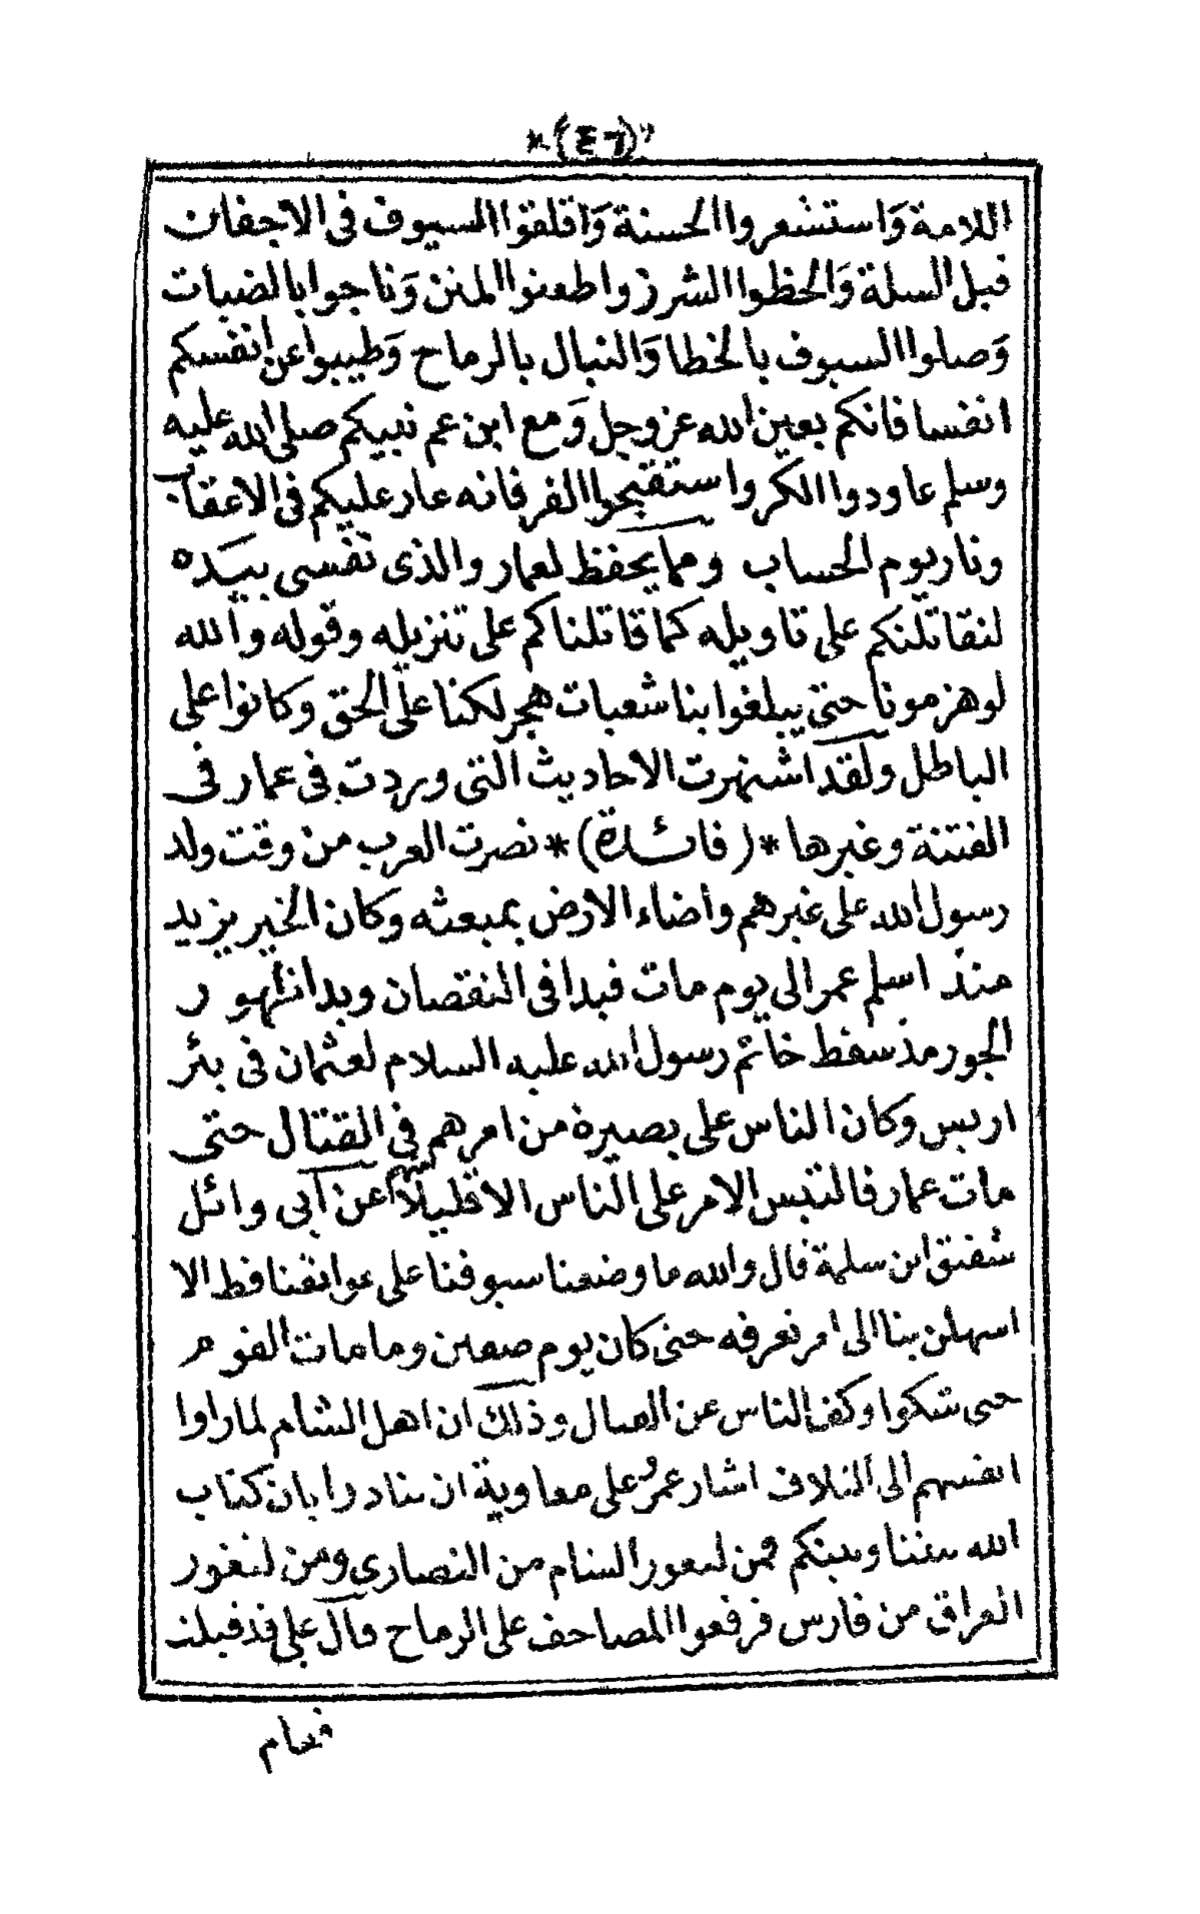 (٤٦)
اللامة وَاستشعروا الحسنة وَاقلقوا السيوف فى الاجفان
قبل السلة وَالحظوا الشرز واطعنوا المنن وَناجوا بالضبات
وَصلوا السيوف بالخطا وَالنبال بالرماح وَطيبوا عن انفسكم
انفسا فانكم بعين الله عز وجل وَمع ابن عم نبيكم صلى الله عليه
وسلم عاودوا الكر واستقبحوا الفر فانه عار عليكم فى الاعقاب
ونار يوم الحساب ومما يحفظ لعمار والذى نفسى بيده
لنقاتلنكم على تاويله كما قاتلناكم على تنزيله وقوله والله
لو هزمونا حتى يبلغوا بنا شعبات هجر لكنا على الحق وكانوا على
الباطل ولقد اشتهرت الاحاديث التى وردت فى عمار فى
الفتنة وغيرها *(فائدة)* نصرت العرب من وقت ولد
رسول الله على غيرهم واضاء الارض بمبعثه وكان الخير يزيد
منذ اسلم عمر الى يوم مات فبدا فى النقصان وبدا ظهور
الجور مذ سقط خاتم رسول الله عليه السلام لعثمان فى بئر
اريس وكان الناس على بصيرة من امرهم فى القتال حتى
مات عمار فالتبس الامر على الناس الا قليلا منهم عن ابى وائل
شقيق ابن سلمة قال والله ما وضعنا سيوفنا على عواتقنا قط الا
اسهلن بنا الى امر نعرفه حتى كان يوم صفين وما مات القوم
حتى شكوا وكف الناس عن القتال وذلك ان اهل الشام لما راوا
انفسهم الى التلاف اشار عمرو على معاوية ان ينادوا بان كتاب
الله بيننا وبينكم فمن لثغور الشام من النصارى ومن لثغور
العراق من فارس فرفعوا المصاحف على الرماح قال على قد قبلت
فقام